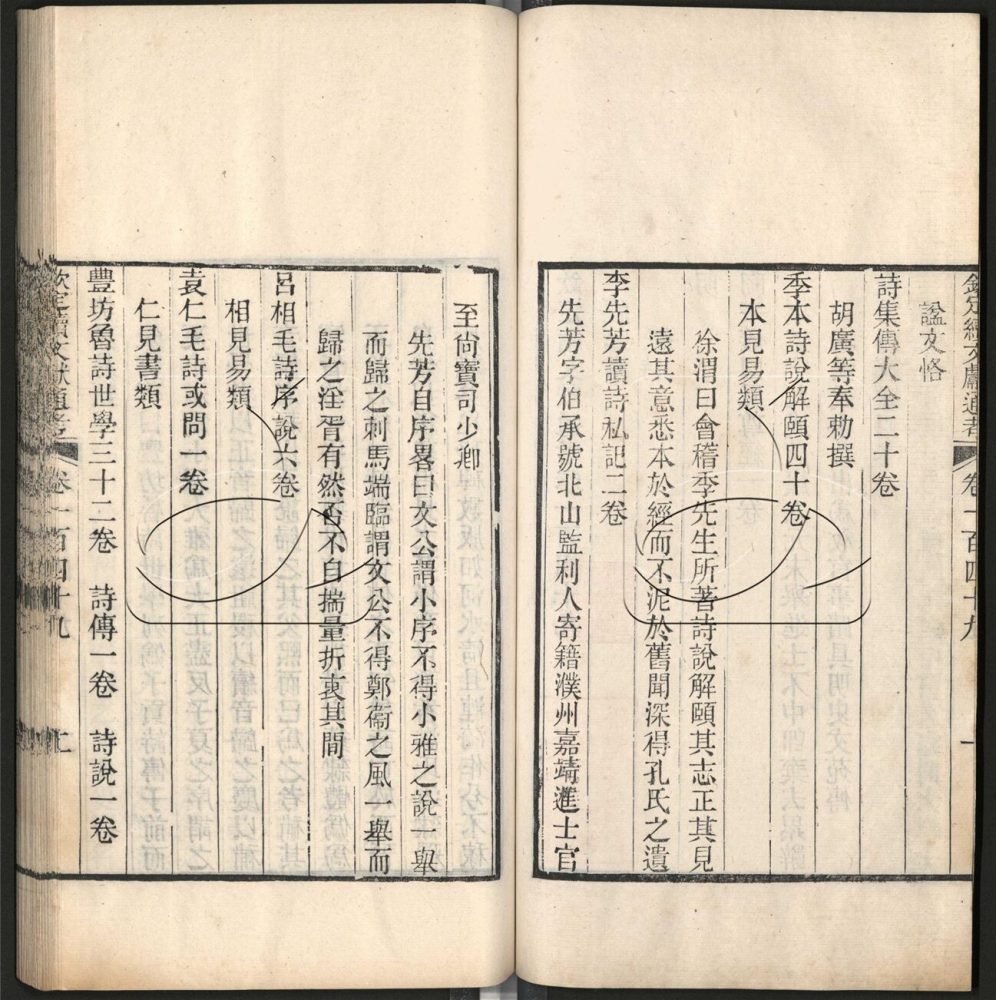 欽定續文獻通考 卷一百四十九 一
諡文恪
詩集傳大全二十卷
胡廣等奉勅撰
季本詩說解頤四十卷
本見易類
徐渭曰會稽季先生所著詩說解頤其志正其見
遠其意悉本於經而不泥於舊聞深得孔氏之遺
李先芳讀詩私記二卷
先芳字伯承號北山監利人寄籍濮州嘉靖進士官
至尙寶司少卿
先芳自序畧曰文公謂小序不得小雅之說一舉
而歸之刺馬端臨謂文公不得鄭衞之風一舉而
歸之淫胥有然否不自揣量折衷其間
呂柟毛詩序說六卷
柟見易類
袁仁毛詩或問一卷
仁見書類
豐坊魯詩世學三十二卷 詩傳一卷 詩說一卷
欽定續文獻通考 卷一百四十九